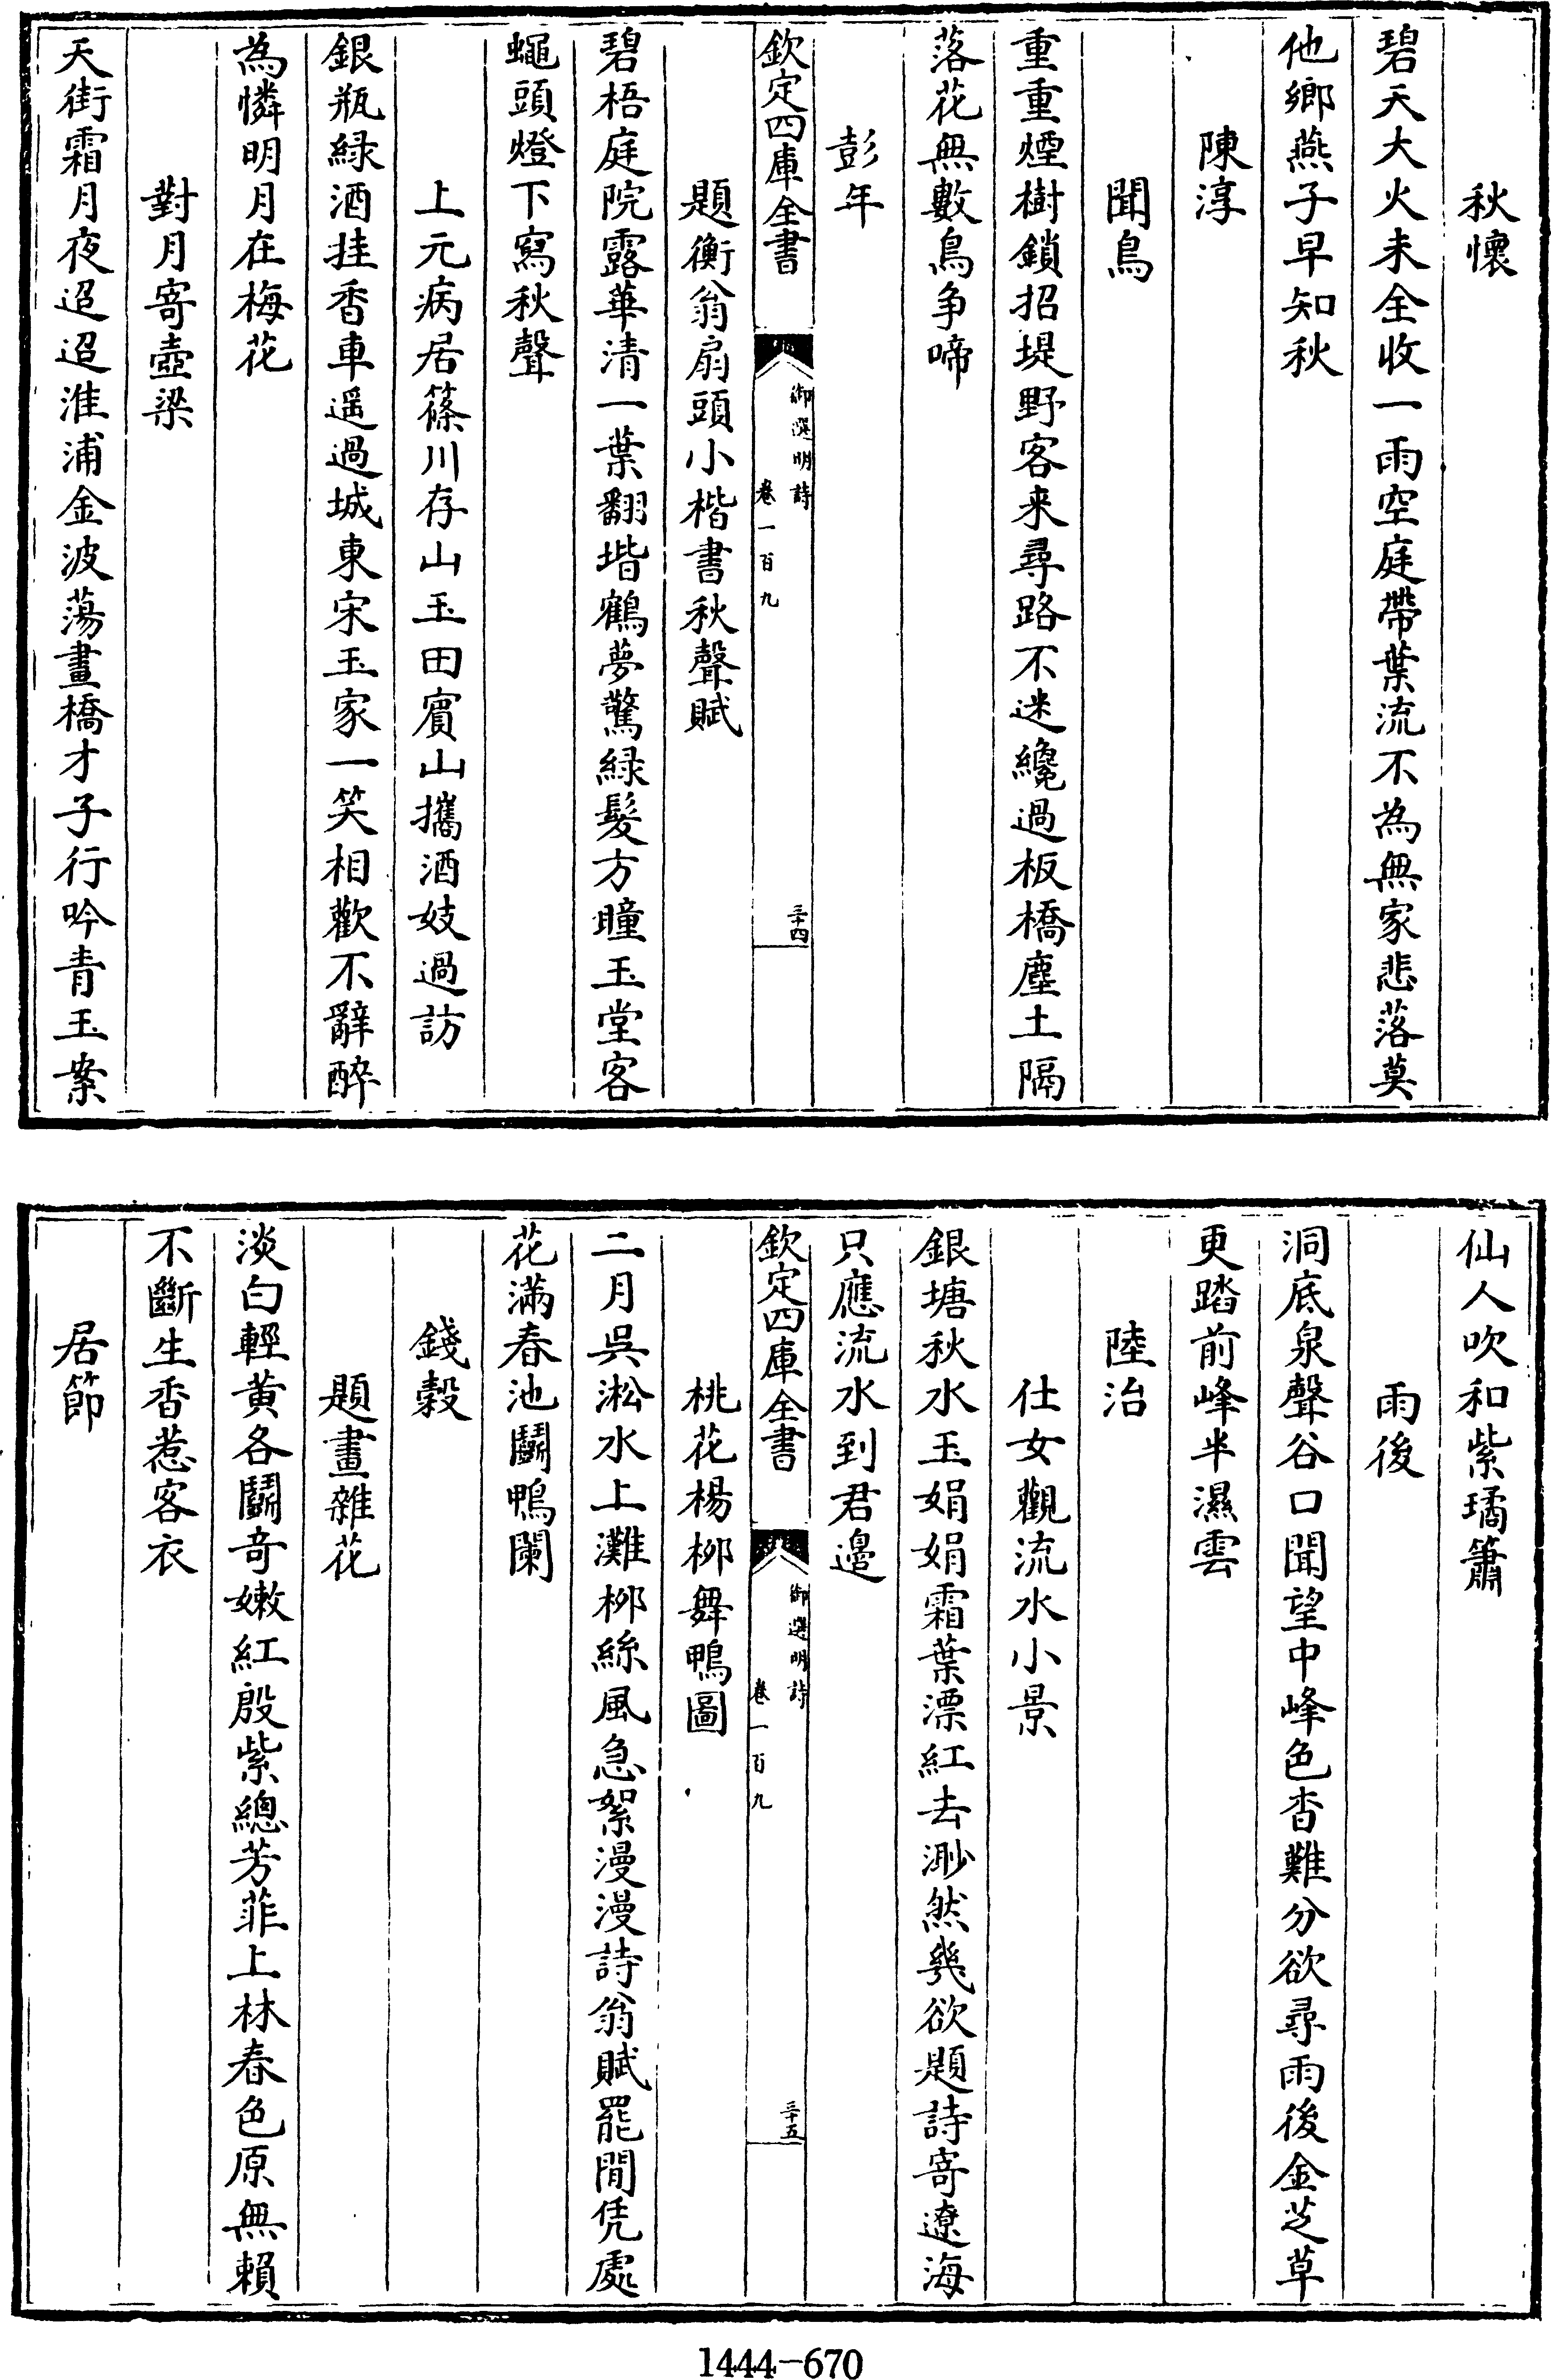 秋懷
碧天大火未全收一雨空庭帶葉流不為無家悲落莫
他鄉燕子早知秋
陳淳
聞鳥
重重煙樹鎖招堤野客来尋路不迷纔過板橋塵土隔
落花無數鳥争啼
彭年
欽定四庫全書
御選明詩
卷一百九
三十四
題衡翁扇頭小楷書秋聲賦
碧梧庭院露華清一葉翻堦鶴夢驚緑髮方瞳玉堂客
蠅頭燈下寫秋聲
上元病居篠川存山玉田賓山攜酒妓過訪
銀瓶緑酒挂香車遥過城東宋玉家一笑相歡不辭醉
為憐明月在梅花
對月寄壺梁
天街霜月夜迢迢淮浦金波蕩畫橋才子行吟青玉案
仙人吹和紫璚簫
雨後
洞底泉聲谷口聞望中峰色杳難分欲尋雨後金芝草
更踏前峰半濕雲
陸治
仕女觀流水小景
銀塘秋水玉娟娟霜葉漂紅去渺然幾欲題詩寄遼海
只應流水到君邊
欽定四庫全書
御選明詩
卷一百九
三十五
桃花楊柳舞鴨圖
二月吳淞水上灘柳絲風急絮漫漫詩翁賦罷閒凭處
花滿春池鬭鴨闌
錢榖
題畫雜花
淡白輕黄各鬭奇嫩紅殷紫總芳菲上林春色原無賴
不斷生香惹客衣
居節
1444-670